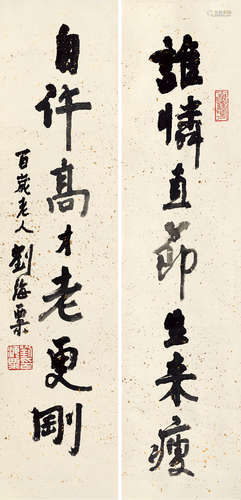 誰憐直節生来瘦
自许高才老更剛
百歲老人劉海粟